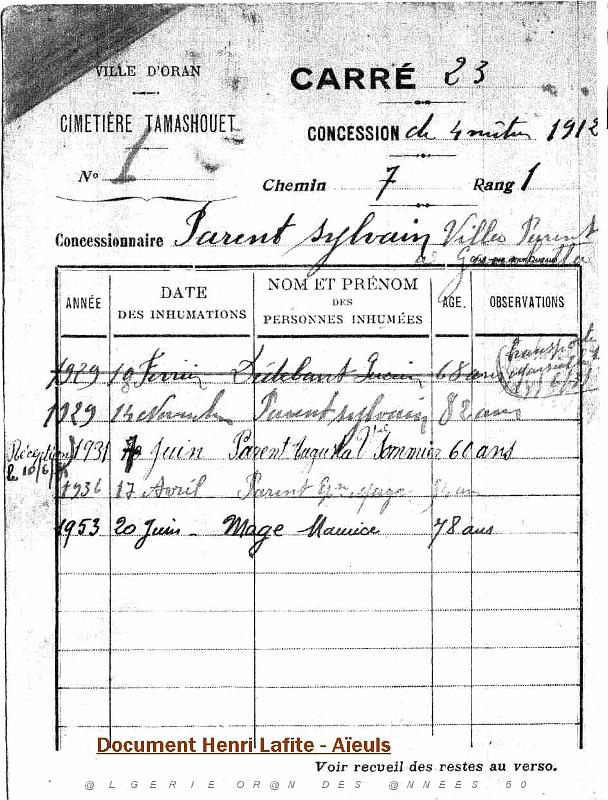 VILLE D'ORAN
CARRÉ 23
CIMETIÈRE TAMASHOUET
CONCESSION de 4 mètres 1912
Nº 1
Chemin 7 Rang 1
Concessionnaire Parent Sylvain Villa Parent
à
ANNÉE DATE DES INHUMATIONS NOM ET PRÉNOM DES PERSONNES INHUMÉES AGE. OBSERVATIONS
1929 18 Février 68 ans
1929 14 Novembre Parent Sylvain 82 ans
Réception le 10/6/ 1931 Juin Parent Augusta Vve Pommier 60 ans
1936 17 Avril Parent ans
1953 20 Juin - Mage Maurice 78 ans
Document Henri Lafite - Aïeuls
Voir recueil des restes au verso.
@ L G E R I E O R @ N D E S @ N N E E S 5 0